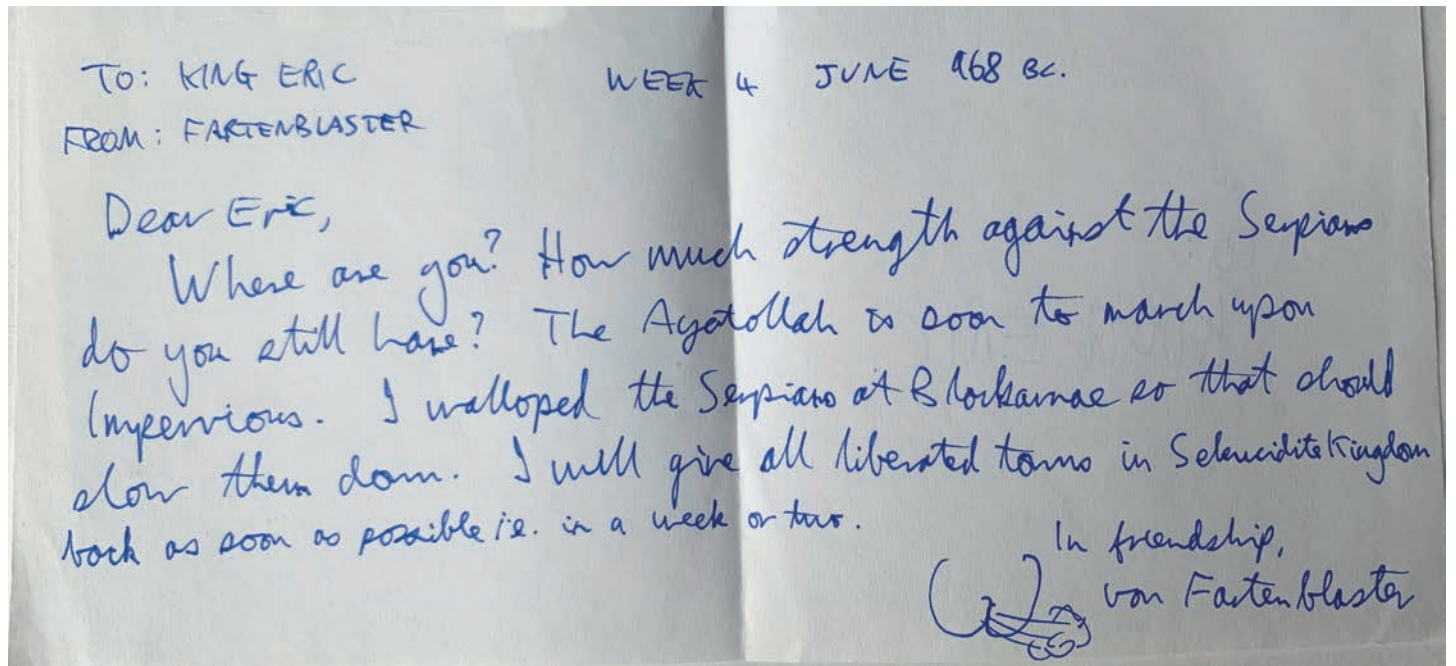 TO: KING ERIC WEEK 4 JUNE 968 BC.
FROM: FARTENBLASTER
Dear Eric,
Where are you? How much strength against the Serpians
do you still have? The Ayatollah is soon to march upon
Impervious. I walloped the Serpians at Blockarnae so that should
slow them down. I will give all liberated towns in Seleucidite Kingdom
back as soon as possible i.e. in a week or two.
In friendship,
von Fartenblaster